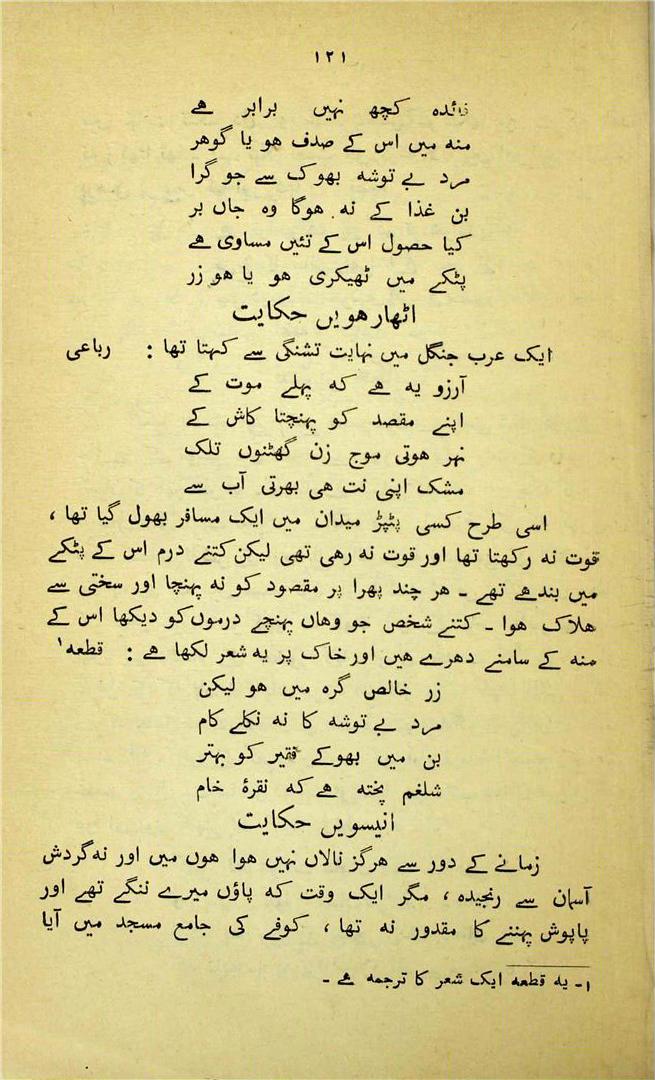 ۱۲۱
فائدہ کچھ نہیں برابر ہے
منہ میں اس کے صدف ہو یا گوہر
مرد بے توشہ بھوک سے جو گرا
بن غذا کے نہ ہوگا وہ جاں بر
کیا حصول اس کے تئیں مساوی ہے
پٹکے میں ٹھیکری ہو یا ہو زر
اٹھارھویں حکایت
ایک عرب جنگل میں نہایت تشنگی سے کہتا تھا : رباعی
آرزو یہ ہے کہ پہلے موت کے
اپنے مقصد کو پہنچتا کاش کے
نہر ہوتی موج زن گھٹنوں تلک
مشک اپنی نت ہی بھرتی آب سے
اسی طرح کسی پٹپڑ میدان میں ایک مسافر بھول گیا تھا ،
قوت نہ رکھتا تھا اور قوت نہ رہی تھی لیکن کتنے درم اس کے پٹکے
میں بندھے تھے ۔ ہر چند پھرا پر مقصود کو نہ پہنچا اور سختی سے
ہلاک ہوا ۔ کتنے شخص جو وہاں پہنچے درموں کو دیکھا اس کے
منہ کے سامنے دھرے ہیں اور خاک پر یہ شعر لکھا ہے : قطعہ۱
زر خالص گرہ میں ہو لیکن
مرد بے توشہ کا نہ نکلے کام
بن میں بھوکے فقیر کو بہتر
شلغم پختہ ہے کہ نقرۂ خام
انیسویں حکایت
زمانے کے دور سے ہرگز نالاں نہیں ہوا ہوں میں اور نہ گردش
آسمان سے رنجیدہ ، مگر ایک وقت کہ پاؤں میرے ننگے تھے اور
پاپوش پہننے کا مقدور نہ تھا ، کوفے کی جامع مسجد میں آیا
۱۔ یہ قطعہ ایک شعر کا ترجمہ ہے ۔